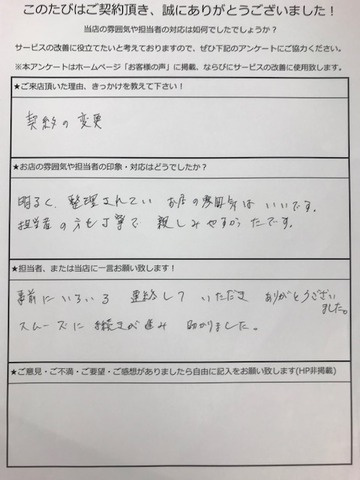 このたびはご契約頂き、誠にありがとうございました！
当店の雰囲気や担当者の対応は如何でしたでしょうか？
サービスの改善に役立てたいと考えておりますので、ぜひ下記のアンケートにご協力ください。
※本アンケートはホームページ「お客様の声」に掲載、ならびにサービスの改善に使用致します。
★ご来店頂いた理由、きっかけを教えて下さい！
契約の変更
★お店の雰囲気や担当者の印象・対応はどうでしたか？
明るく、整理されてい お店の雰囲気はいいです。
担当者の方も丁寧で 親しみやすかったです。
★担当者、または当店に一言お願い致します！
事前にいろいろ 連絡して いただき ありがとうござい
ました。
スムーズに 手続きが進み 助かりました。
★ご意見・ご不満・ご要望・ご感想がありましたら自由に記入をお願い致します(HP非掲載)